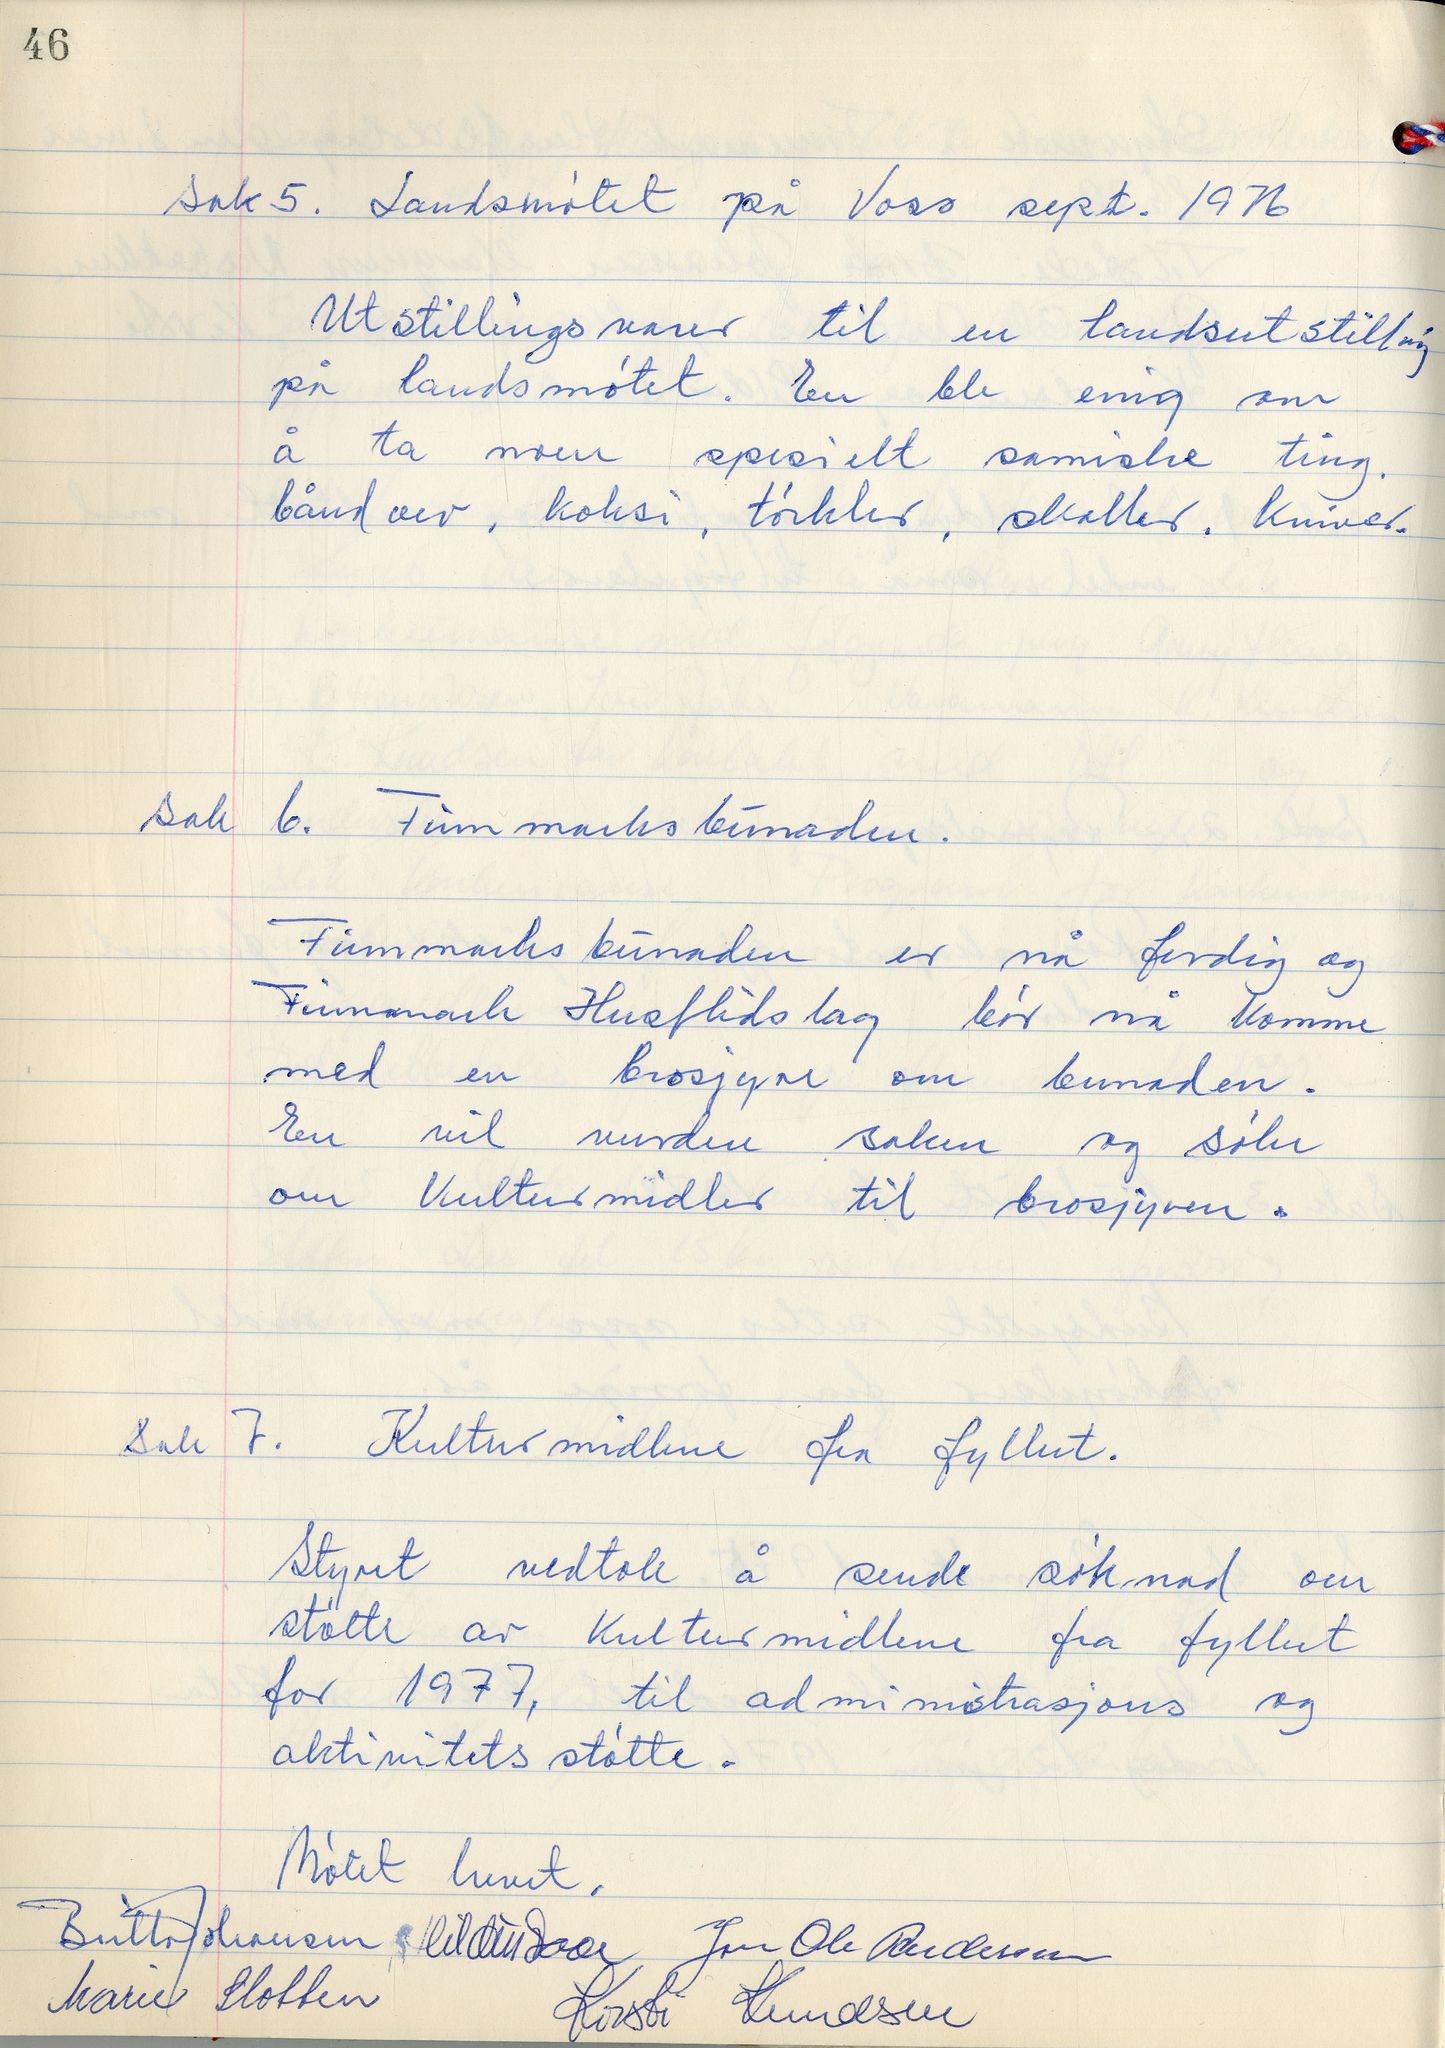 46
Sak 5. Landsmötet på Voss sept. 1976
Utstillingsvarer til en landsutstilling
på landsmötet. En ble enig om
å ta noen spesielt samiske ting.
båndvev, koksi, törkler, skaller. Kniver.
Sak 6. Finnmarksbunaden.
Finnmarksbunaden er nå ferdig og
Finnmark Husflidslag bör nå komme
med en brosjyre om bunaden.
En vil vurdere saken og söke
om Kulturmidler til brosjyren.
Sak 7. Kulturmidlene fra fylket.
Styret vedtok å sende söknad om
stötte av Kulturmidlene fra fylket
for 1977, til administrasjons og
aktivitetsstötte.
Mötet hevet.
Britta Johansen Jon Ole Andersen
Marie Slotten Kirsti Knudsen